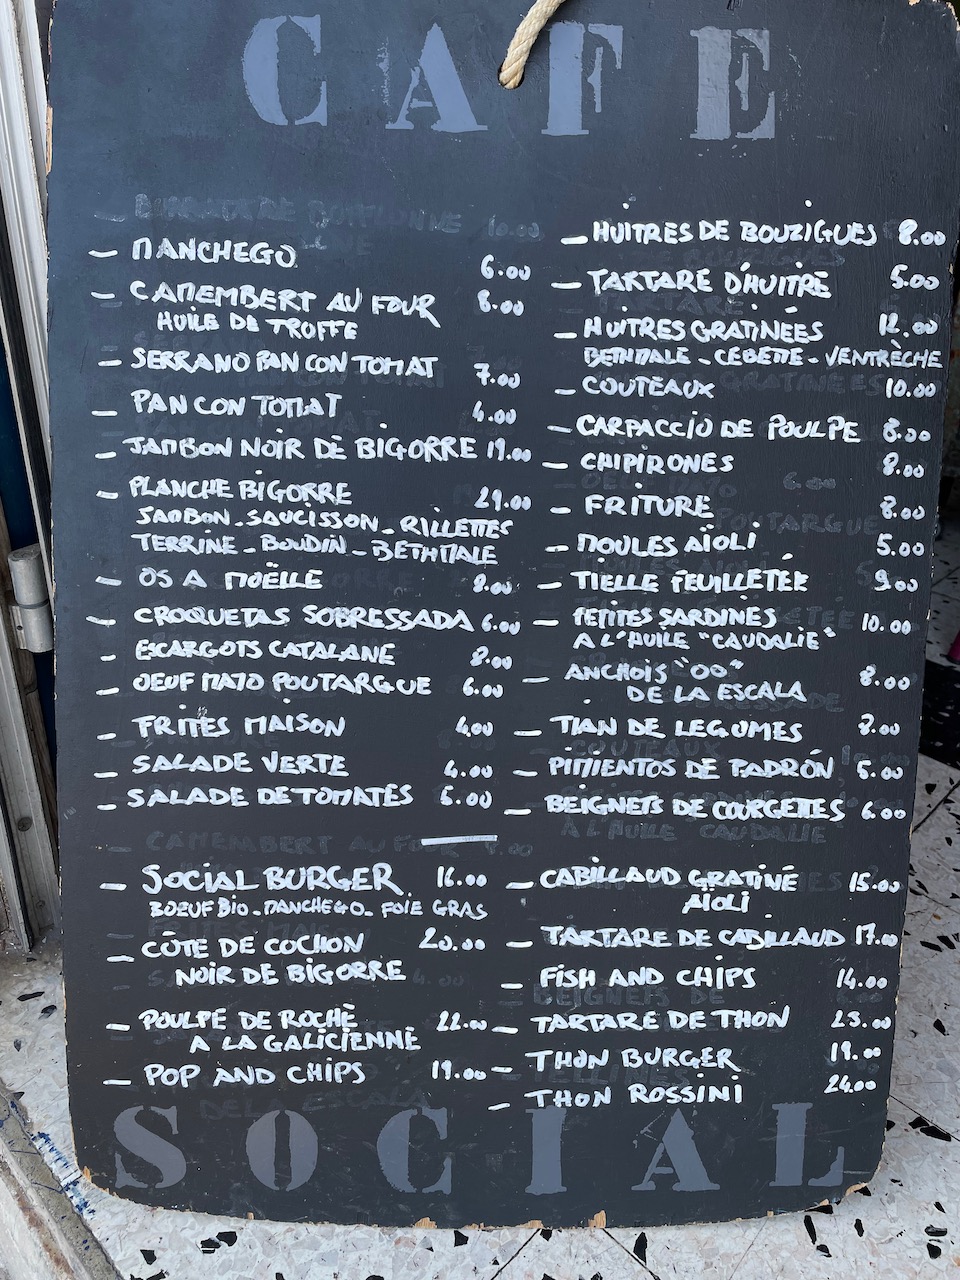 CAFE
- MANCHEGO 6.00
- CAMEMBERT AU FOUR 8.00
HUILE DE TRUFFE
- SERRANO PAN CON TOMAT 7.00
- PAN CON TOMAT 4.00
- JAMBON NOIR DE BIGORRE 19.00
- PLANCHE BIGORRE 29.00
JAMBON - SAUCISSON - RILLETTES
TERRINE - BOUDIN - BETHMALE
- OS A MOËLLE 8.00
- CROQUETAS SOBRESSADA 6.00
- ESCARGOTS CATALANE 8.00
- OEUF MAYO POUTARGUE 6.00
- FRITES MAISON 4.00
- SALADE VERTE 4.00
- SALADE DE TOMATES 6.00
- SOCIAL BURGER 16.00
BOEUF BIO - MANCHEGO - FOIE GRAS
- CÔTE DE COCHON 20.00
NOIR DE BIGORRE
- POULPE DE ROCHE 22.00
A LA GALICIENNE
- POP AND CHIPS 19.00
- HUITRES DE BOUZIGUES 8.00
- TARTARE D'HUITRE 5.00
- HUITRES GRATINÉES 12.00
BETHMALE - CEBETTE - VENTRÈCHE
- COUTEAUX 10.00
- CARPACCIO DE POULPE 8.00
- CHIPIRONES 8.00
- FRITURE 8.00
- MOULES AÏOLI 5.00
- TIELLE FEUILLETÉE 9.00
- PETITES SARDINES 10.00
A L'HUILE "CAUDALIE"
- ANCHOIS "OO" 8.00
DE LA ESCALA
- TIAN DE LEGUMES 8.00
- PIMIENTOS DE PADRÓN 5.00
- BEIGNETS DE COURGETTES 6.00
- CABILLAUD GRATINÉ 15.00
AÏOLI
- TARTARE DE CABILLAUD 17.00
- FISH AND CHIPS 14.00
- TARTARE DE THON 23.00
- THON BURGER 19.00
- THON ROSSINI 24.00
SOCIAL